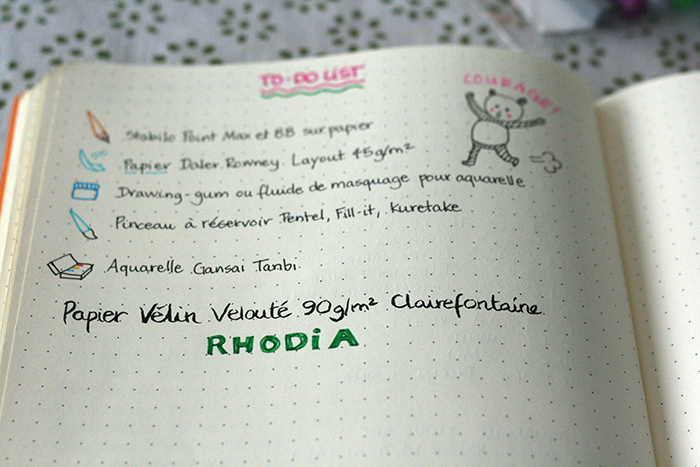 TO-DO LIST
COURAGE!
Stabilo Point Max et 88 sur papier
Papier Daler. Rowney. Layout 45g/m²
Drawing-gum ou fluide de masquage pour aquarelle
Pinceau à réservoir Pentel, Fill-it, Kuretake
Aquarelle Gansai Tanbi.
Papier Vélin Velouté 90g/m² Clairefontaine
RHODiA